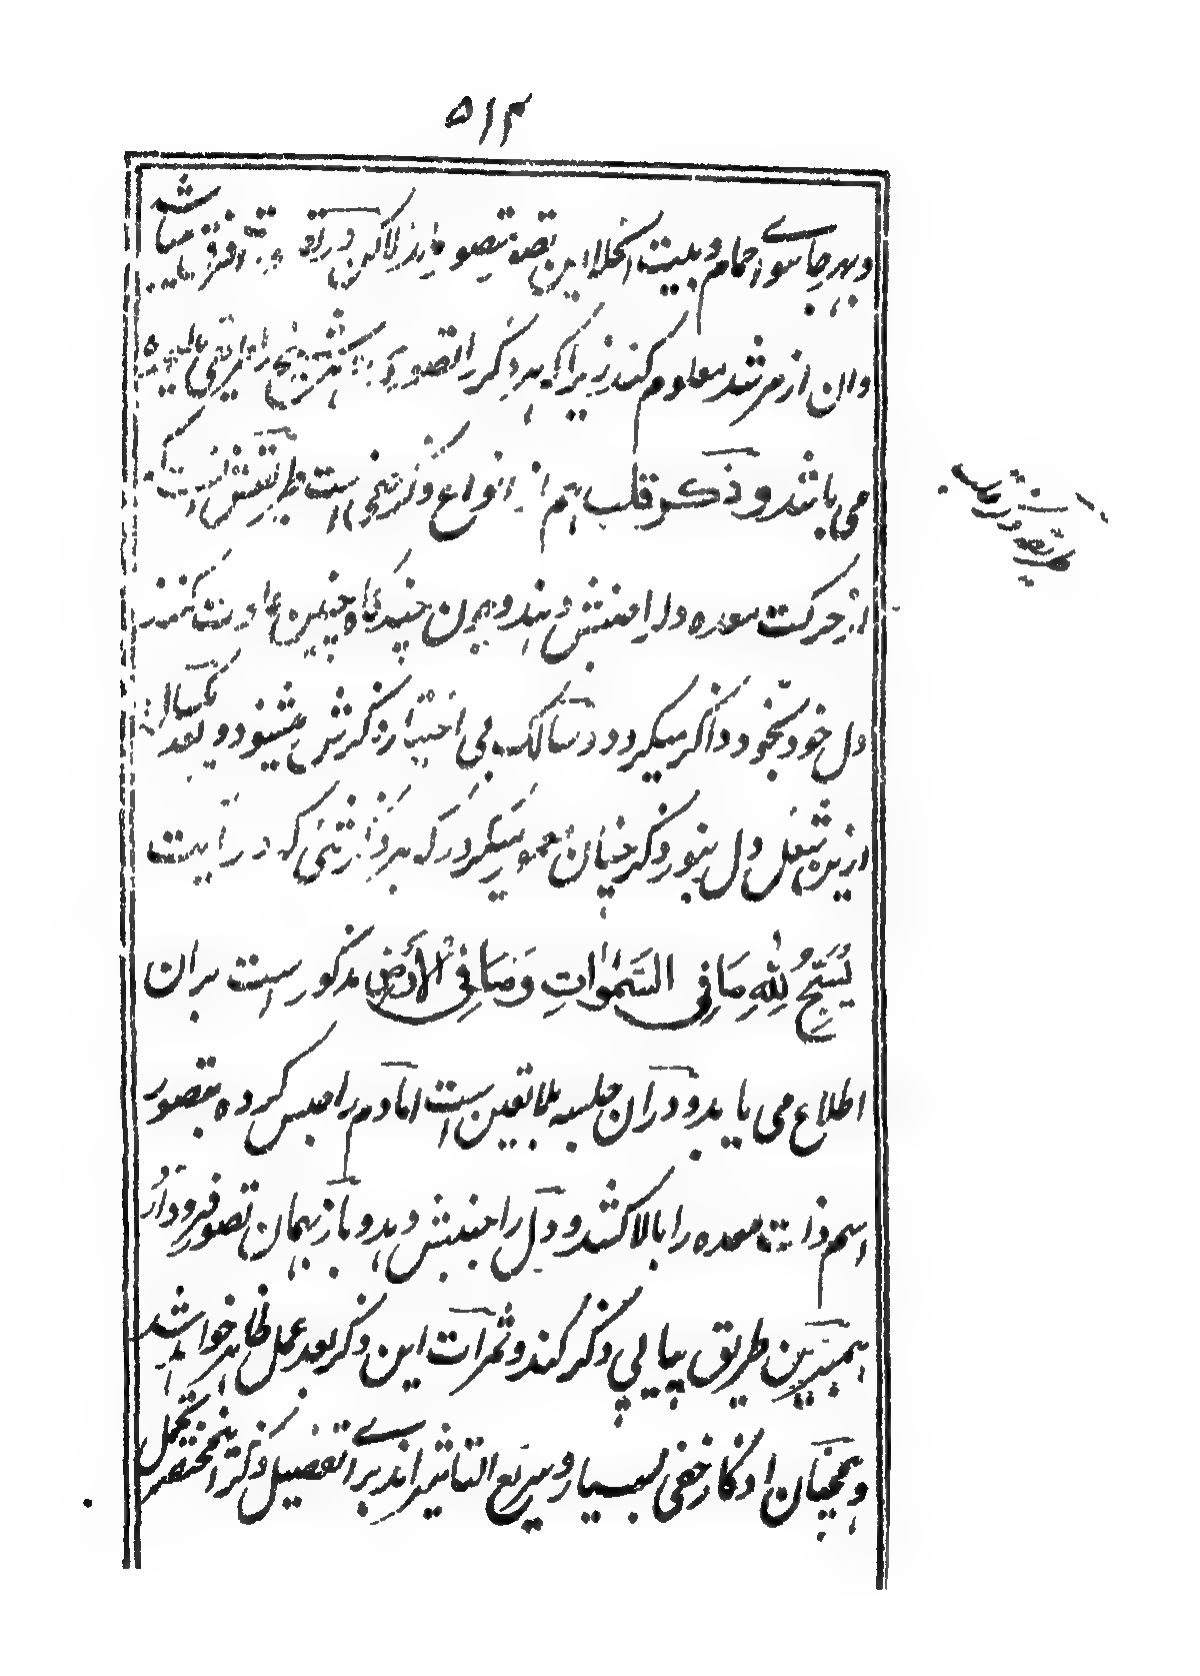 ۵۱۴
وبهر جا سواے حمام وبیت الخلا این تصور
وان از مرشد معلوم کند زیرا که هر ذکر را تصورے
می باشد و ذکر قلب هم از انواع ذکر خفی است طریقش اینست که
از حرکت معده دل را جنبش دهند و همین چندگاه چنین عادت کنند
دل خود بخود ذاکر میگردد و سالک بی اختیار ذکرش میشنود و بعد یکسال
ازین شغل دل بنور ذکر چنان معمور میگردد که هر ذکر شئی که در آیت
یُسَبِّحُ لِلّٰهِ مَا فِی السَّمٰوَاتِ وَمَا فِی الْاَرْضِ مذکور است بران
اطلاع می یابد و دران جلسه بلا تعین است اما دم را حبس کرده بتصور
اسم ذات معده را بالا کشد و دل را جنبش دهد و باز بهمان تصور فرود آرد
همبرین طریق پیاپی ذکر کند و ثمرات این ذکر بعد عمل ظاهر خواهد شد
وهمچنان اذکار خفی بسیار و سریع التاثیر اند براے تفصیل ذکر این مختصر تحمل